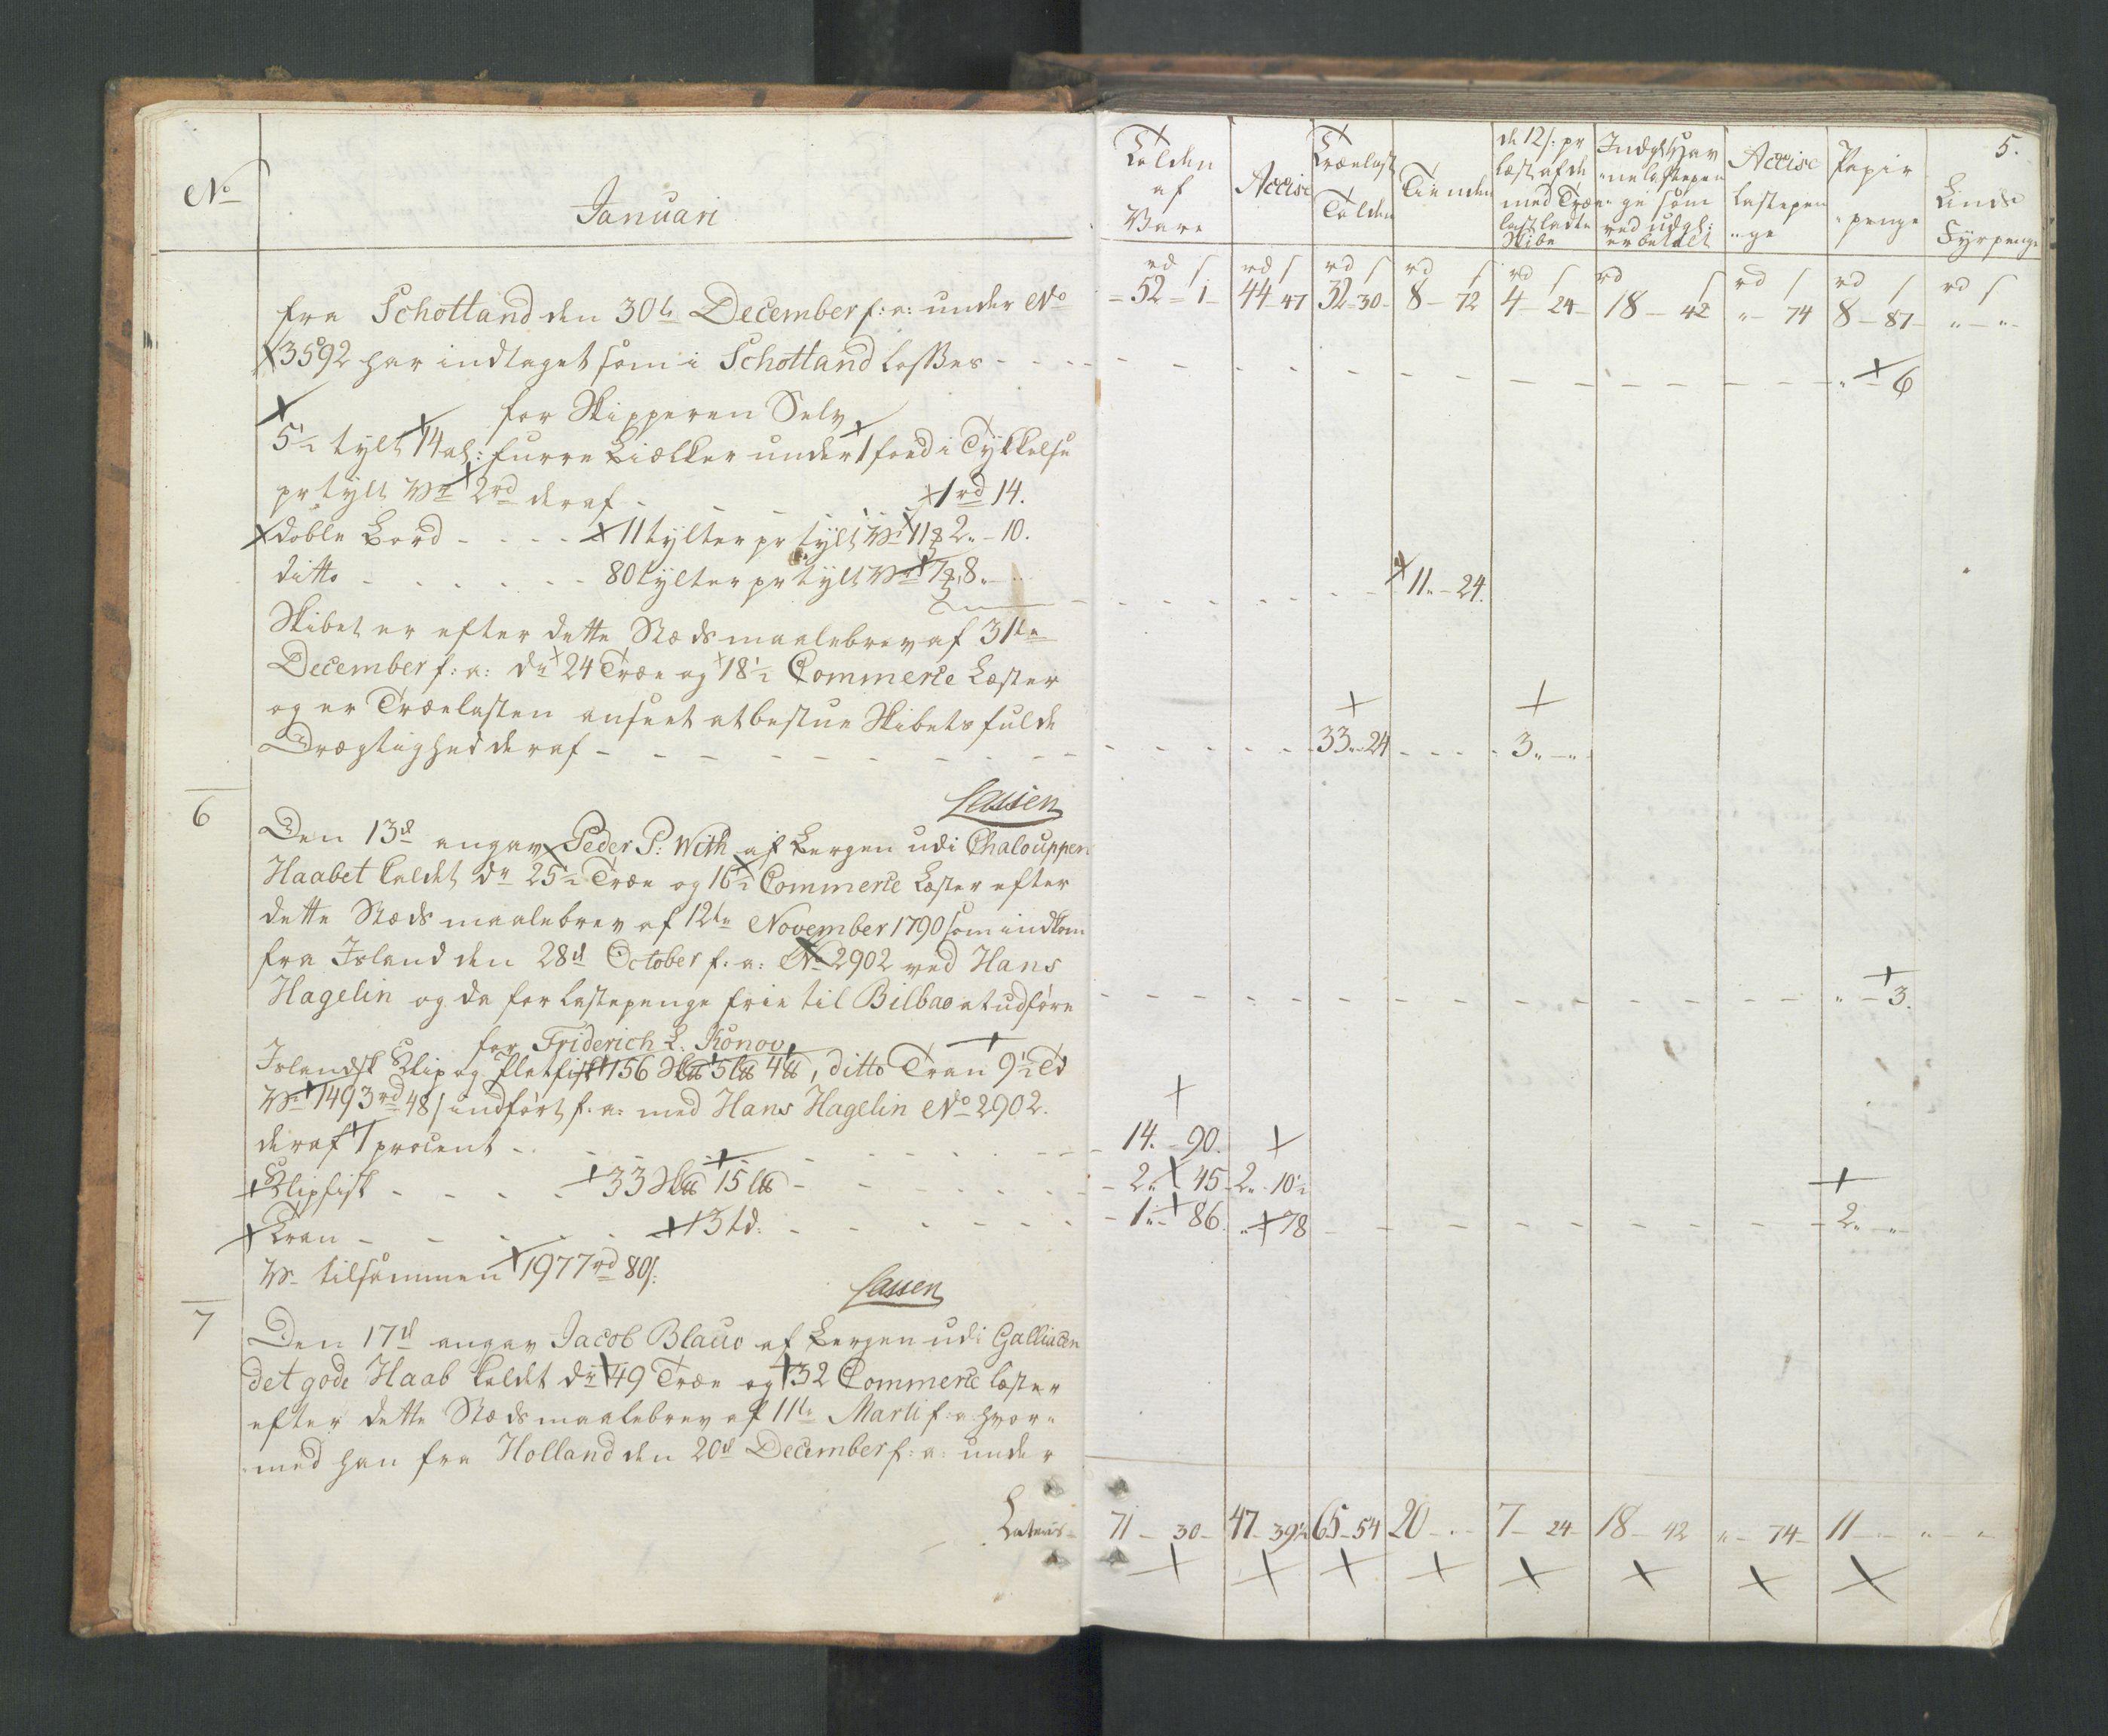 No
Januari
fra Schottland den 30te December f: a: under No
3592 har indtaget som i Schottland losses
for Skipperen Selv
5½ tylt 14 al: furre Biælker under 1 food i Tykkelse
pr tylt Wr 2rd deraf 1rd 14.
doble Bord 11 tylter pr tylt Wr 11ß 2„ - 10.
ditto 80 tylter pr tylt Wr 7ß 8„ -
Skibet er efter dette Stæds maalebrev af 31te
December f: a: dr 24 Træe og 18½ Commerce Læster
og er Trælasten anseet at bestue Skibets fulde
Drægtighed deraf
Lassen
6
Den 13d angav Peder P: With af Bergen udi Chalouppen
Haabet kaldet dr 25½ Træe og 16½ Commerce Læster efter
dette Stæds maalebrev af 12te November 1790 som indkom
fra Island den 28d October f: a: No 2902 ved Hans
Hagelin og da for lastepenge frie til Bilbao at udføre
for Friderich L. Konov
Islandsk Klip og Flatfisk 156 5 4, ditto Tran 9½ Td
Wr 1493rd 48ſ indført f: a: med Hans Hagelin No 2902.
deraf 1 procent
Klipfisk 33 15
Tran 3 td:
Wr tilsammen 1977rd 80ſ:
Lassen
7
Den 17d angav Jacob Blauw af Bergen udi Galliacen
det gode Haab kaldet dr 49 Træe og 32 Commerce læster
efter dette Stæds maalebrev af 11te Marti f: a: hvor„
med han fra Holland den 20d December f: a: under
Latus
5.
Tolden af Vare
Accise
Trælast Tolden
Tienden
de 12ſ: pr læst af de med Træe lastladte Skibe
Indgl: Hav„ nelastepen ge som ved udgl: er betalt
Accise lastepen „ge
Papir „penge
Linds Fyrpenge
rd ſ rd ſ rd ſ rd ſ rd ſ rd ſ rd ſ rd ſ rd ſ
52 - 1 44 - 47 32 - 30 8 - 72 4 - 24 18 - 42 „ - 74 8 - 87 „ - „
„ - 6
11„ - 24.
33„ - 24 3„ - „
„ - 3.
14. - 90.
2„ 45 2„ - 10½
1„ - 86. „ 78 2„ - „
71 - 30 47 - 39½ 65 - 54 20 - „ 7 - 24 18 - 42 „ - 74 11 - „ „ - „